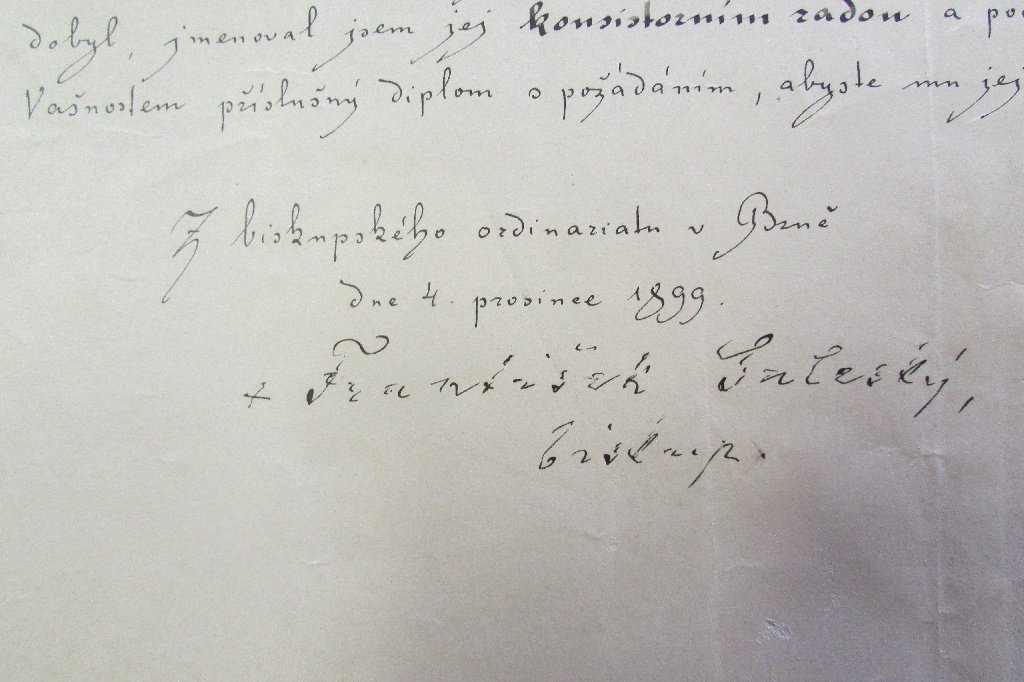 dobyl, jmenoval jsem jej konsistorním radou a
Vašnostem příslušný diplom s požádáním, abyste mu jej
Z biskupského ordinariatu v Brně
dne 4. prosince 1899.
+ František Saleský,
biskup.